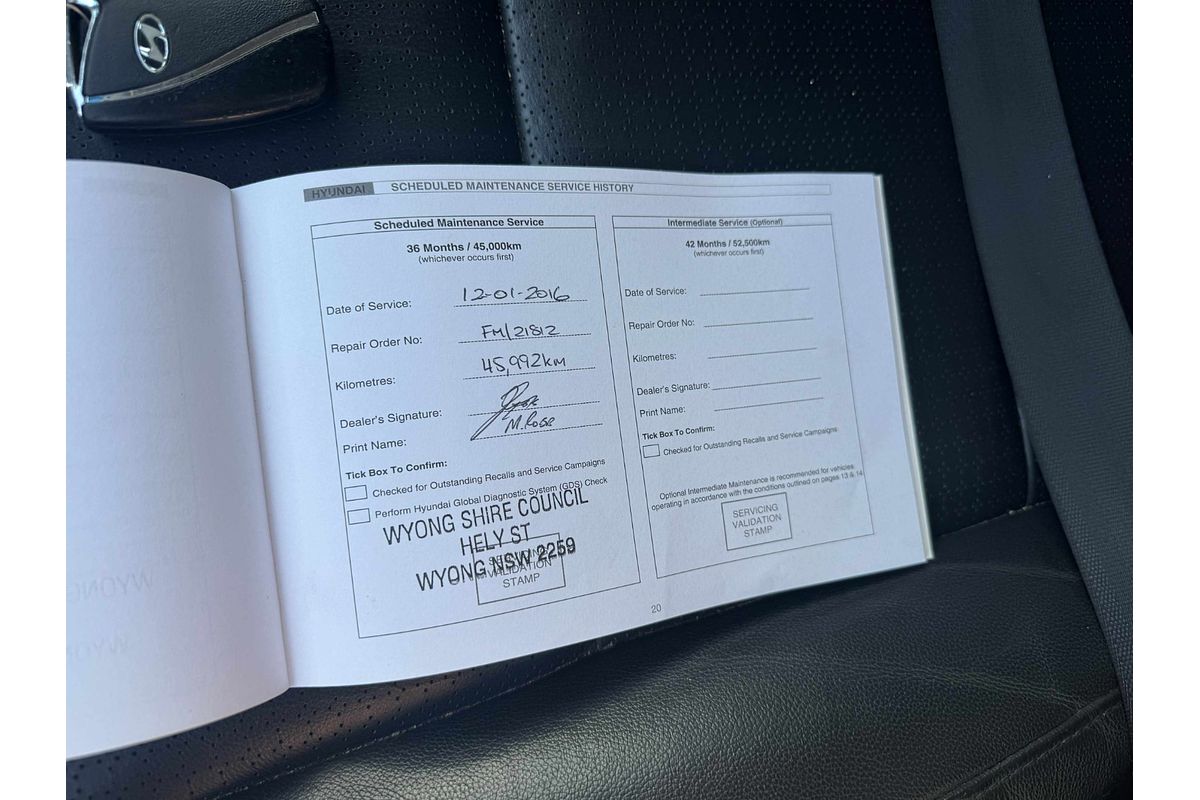 HYUNDAI SCHEDULED MAINTENANCE SERVICE HISTORY
Scheduled Maintenance Service
36 Months / 45,000km
(whichever occurs first)
Date of Service: 12-01-2016
Repair Order No: FM/21812
Kilometres: 45,992km
Dealer's Signature:
Print Name: M. Rose
Tick Box To Confirm:
Checked for Outstanding Recalls and Service Campaigns
Perform Hyundai Global Diagnostic System (GDS) Check
WYONG SHIRE COUNCIL
HELY ST
WYONG NSW 2259
SERVICING
VALIDATION
STAMP
Intermediate Service (Optional)
42 Months / 52,500km
(whichever occurs first)
Date of Service:
Repair Order No:
Kilometres:
Dealer's Signature:
Print Name:
Tick Box To Confirm:
Checked for Outstanding Recalls and Service Campaigns
Optional Intermediate Maintenance is recommended for vehicles
operating in accordance with the conditions outlined on pages 13 & 14
SERVICING
VALIDATION
STAMP
20